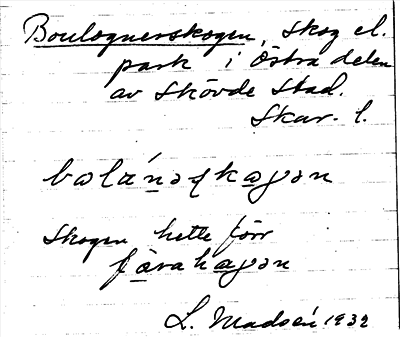 Boulognerskogen, skog el.
park i östra delen
av Skövde stad.
Skar. l.
bəlánəʃkagən
Skogen hette förr
färahagən
L. Madsén 1932